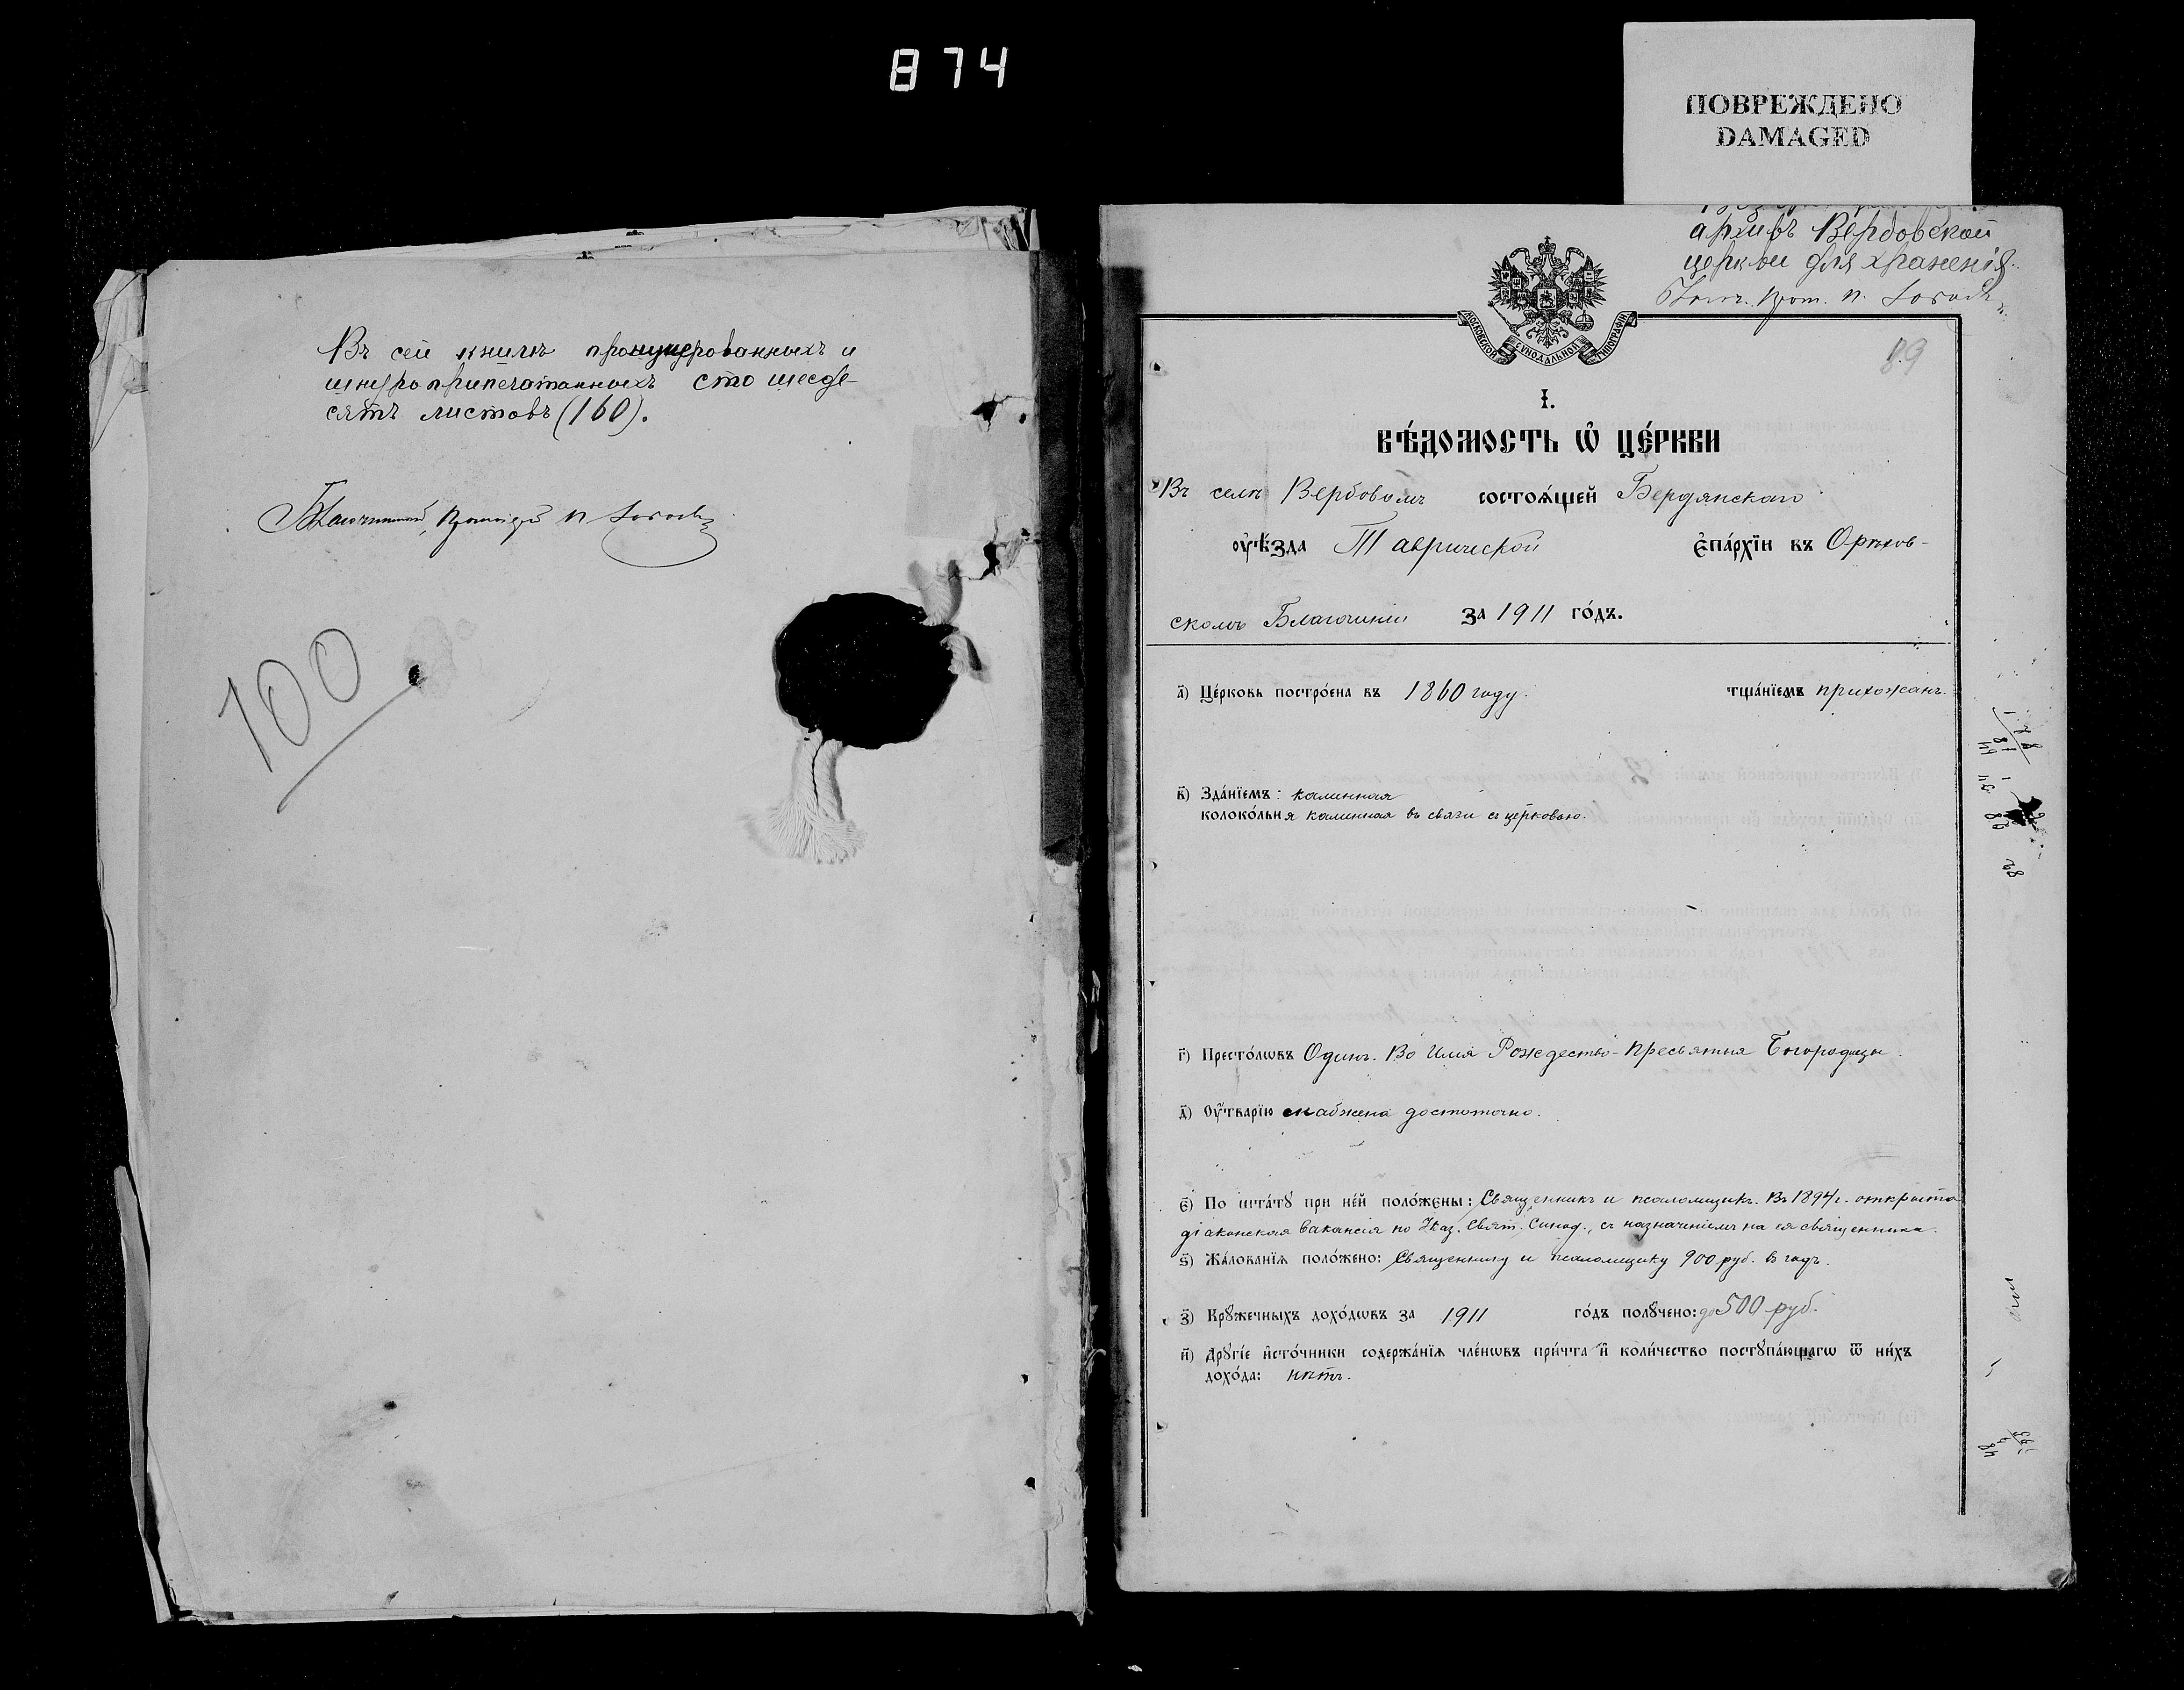 874
ПОВРЕЖДЕНО
DAMAGED
Въ сей книгѣ пронумерованныхъ и
шнуроприпечатанныхъ сто шесдѣ-
сятъ листовъ (160).
Благочинный, Протоіерей П.
100
архивъ Вербовской
церкви для храненія.
Благ. Прот. П.
МОСКОВСКОЙ СѴНОДАЛЬНОЙ ТИПОГРАФІИ
89
I.
ВѢ́ДОМОСТЬ Ѡ҆ ЦЕ́РКВИ
Въ селѣ Вербовомъ состоѧ́щей Бердянскаго
ᲂу҆ѣ́зда Таврической є҆па́рхїи въ Орѣхов-
скомъ Благочиніи за 1911 го́дъ.
а҃) Це́рковь постро́ена въ 1860 году. тща́нїемъ прихожанъ.
в҃) Зда́нїемъ: каменная
колоко́льня каменная въ связи съ церковью.
г҃) Престо́лѡвъ Одинъ. Во Имя Рождество-Пресвятыя Богородицы.
д҃) Оу҆́тварїю снабжена достаточно.
є҃) По шта́тꙋ при не́й поло́жены: Священникъ и псаломщикъ. Въ 1894 г. открыта
діаконская вакансія по Указ. Свят. Синод., съ назначеніемъ на ея священника.
ѕ҃) Жа́лованїѧ поло́жено: Священнику и псаломщику 900 руб. въ годъ.
з҃) Крꙋ́жечныхъ дохо́дѡвъ за 1911 го́дъ полꙋ́чено: до 500 руб.
и҃) Дрꙋгі́е и҆сто́чники содержа́нїѧ чле́нѡвъ при́чта и҆ коли́чество постꙋпа́ющагѡ ѿ ни́хъ
дохо́да: нѣтъ.